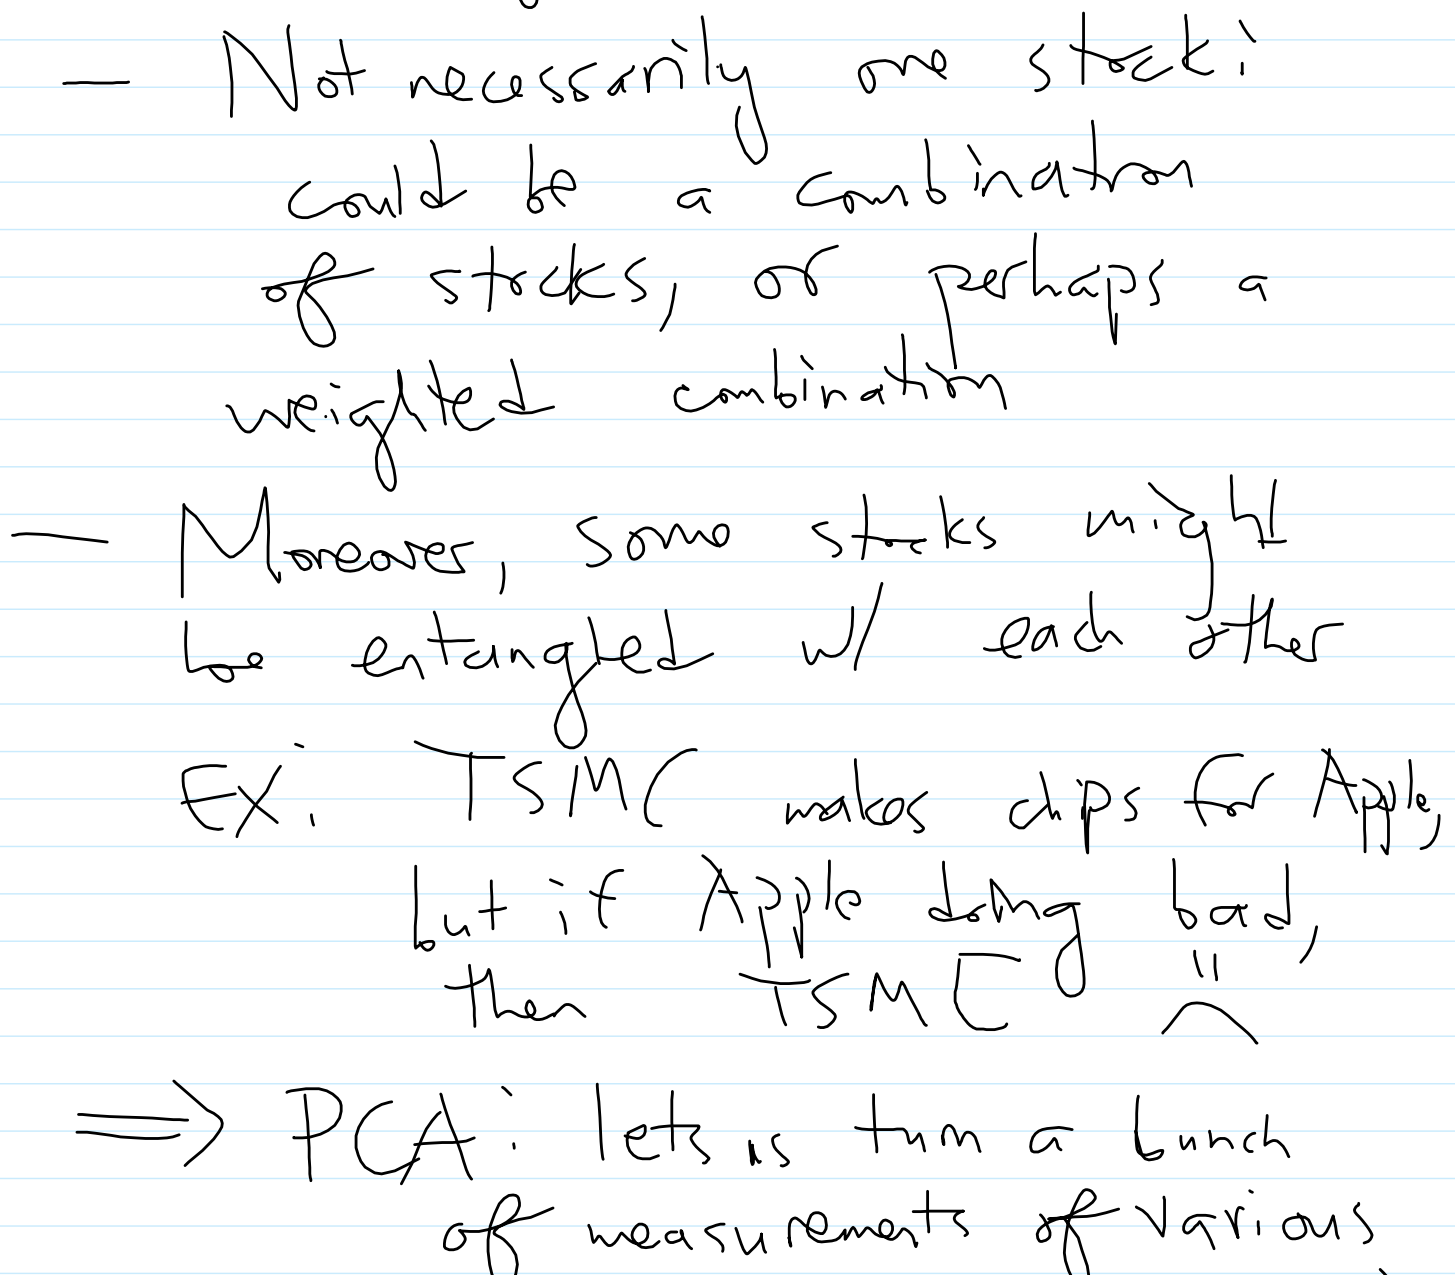 — Not necessarily one stock:
could be a combination
of stocks, or perhaps a
weighted combination
— Moreover, some stocks might
be entangled w/ each other
Ex: TSMC makes chips for Apple,
but if Apple doing bad,
then TSMC :(
⇒ PCA: lets us turn a bunch
of measurements of various